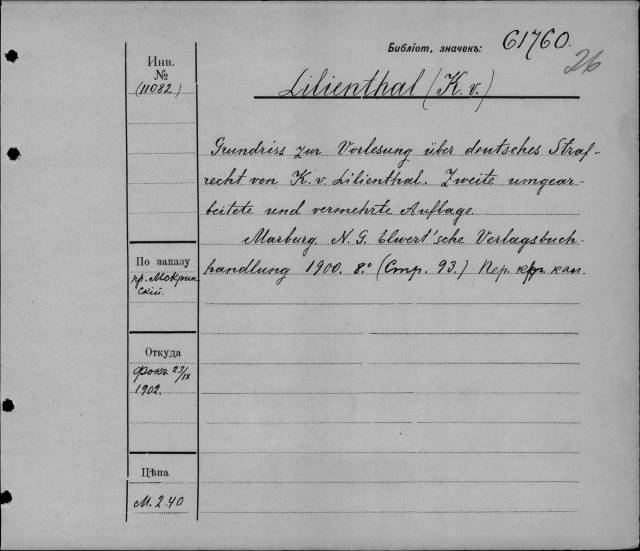 Библіот. значекъ: 61760.
26
Инв.
№
(11082)
Lilienthal (K. v.)
Grundriss zur Vorlesung über deutsches Straf-
recht von K. v. Lilienthal. Zweite umgear-
beitete und vermehrte Auflage.
Marburg. N. G. Elwert'sche Verlagsbuch-
handlung 1900. 8.° (Стр. 93.) Пер. кол.
По заказу
пр. Мокрин-
скій.
Откуда
Фокъ 23/IX
1902.
Цѣна
М. 2.40